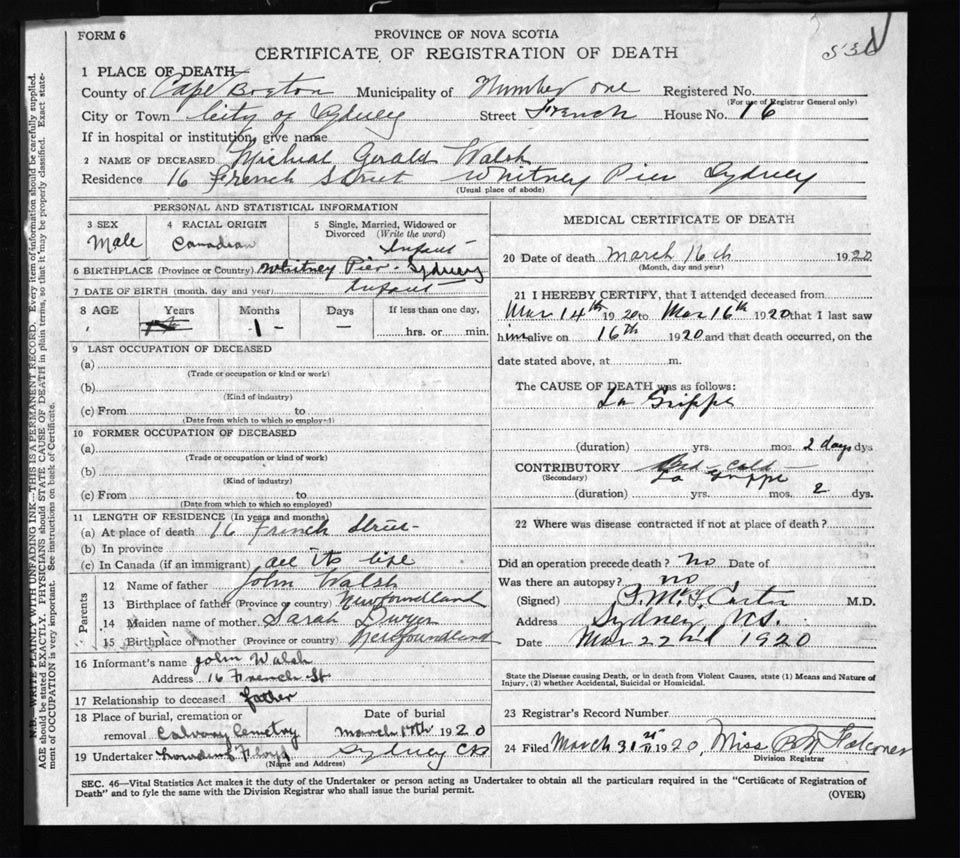 FORM 6
PROVINCE OF NOVA SCOTIA
CERTIFICATE OF REGISTRATION OF DEATH
1 PLACE OF DEATH
County of Cape Breton Municipality of Number one Registered No.
(For use of Registrar General only)
City or Town City of Sydney Street French House No. 16
If in hospital or institution, give name
2 NAME OF DECEASED Micheal Gerald Walsh
Residence 16 French Street Whitney Pier Sydney
(Usual place of abode)
PERSONAL AND STATISTICAL INFORMATION
3 SEX Male
4 RACIAL ORIGIN Canadian
5 Single, Married, Widowed or Divorced (Write the word) Infant
6 BIRTHPLACE (Province or Country) Whitney Pier - Sydney
7 DATE OF BIRTH (month, day and year) Infant
8 AGE Years Months Days If less than one day,
1 - — hrs. or min.
9 LAST OCCUPATION OF DECEASED
(a)
(Trade or occupation or kind or work)
(b)
(Kind of industry)
(c) From to
(Date from which to which so employed)
10 FORMER OCCUPATION OF DECEASED
(a)
(Trade or occupation or kind of work)
(b)
(Kind of industry)
(c) From to
(Date from which to which so employed)
11 LENGTH OF RESIDENCE (In years and months)
(a) At place of death 16 French Street
(b) In province
(c) In Canada (if an immigrant) all its life
Parents
12 Name of father John Walsh
13 Birthplace of father (Province or country) Newfoundland
14 Maiden name of mother Sarah Dwyer
15 Birthplace of mother (Province or country) Newfoundland
16 Informant's name John Walsh
Address 16 French St
17 Relationship to deceased father
18 Place of burial, cremation or removal Calvary Cemetry
Date of burial March 17th 1920
19 Undertaker Floyd Sydney CB
(Name and Address)
MEDICAL CERTIFICATE OF DEATH
20 Date of death March 16th 1920
(Month, day and year)
21 I HEREBY CERTIFY, that I attended deceased from
Mar 14th 1920 to Mar 16th 1920 that I last saw
him alive on 16th 1920 and that death occurred, on the
date stated above, at m.
The CAUSE OF DEATH was as follows:
La Grippe
(duration) yrs. mos. 2 days dys
CONTRIBUTORY cold —
(Secondary) La Grippe
(duration) yrs. mos. 2 dys.
22 Where was disease contracted if not at place of death?
Did an operation precede death? no Date of
Was there an autopsy? no
(Signed) Carter M.D.
Address Sydney N.S.
Date Mar 22nd 1920
State the Disease causing Death, or in death from Violent Causes, state (1) Means and Nature of
Injury, (2) whether Accidental, Suicidal or Homicidal.
23 Registrar's Record Number
24 Filed March 31st 1920 Miss Falconer
Division Registrar
SEC. 46—Vital Statistics Act makes it the duty of the Undertaker or person acting as Undertaker to obtain all the particulars required in the "Certificate of Registration of
Death" and to fyle the same with the Division Registrar who shall issue the burial permit.
(OVER)
N.B. WRITE PLAINLY WITH UNFADING INK—THIS IS A PERMANENT RECORD. Every item of information should be carefully supplied.
AGE should be stated EXACTLY. PHYSICIANS should STATE CAUSE OF DEATH in plain terms, so that it may be properly classified. Exact state-
ment of OCCUPATION is very important. See instructions on back of Certificate.